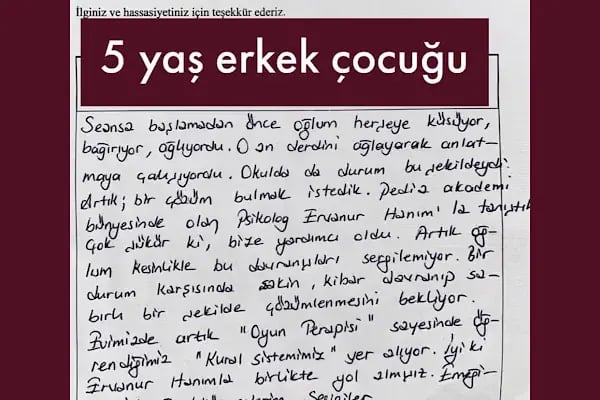 İlginiz ve hassasiyetiniz için teşekkür ederiz.
5 yaş erkek çocuğu
Seansa başlamadan önce oğlum herşeye küsüyor,
bağırıyor, ağlıyordu. O an derdini ağlayarak anlat-
maya çalışıyordu. Okulda da durum bu şekildeydi.
Artık; bir çözüm bulmak istedik. Pedia akademi
bünyesinde olan Psikolog Ervanur Hanım'la tanıştık
Çok şükür ki, bize yardımcı oldu. Artık oğ-
lum kesinlikle bu davranışları sergilemiyor. Bir
durum karşısında sakin, kibar davranıp sa-
bırlı bir şekilde çözümlenmesini bekliyor.
Evimizde artık "Oyun Terapisi" sayesinde öğ-
rendiğimiz "Kural sistemimiz" yer alıyor. İyi ki
Ervanur Hanımla birlikte yol almışız. Emeği-